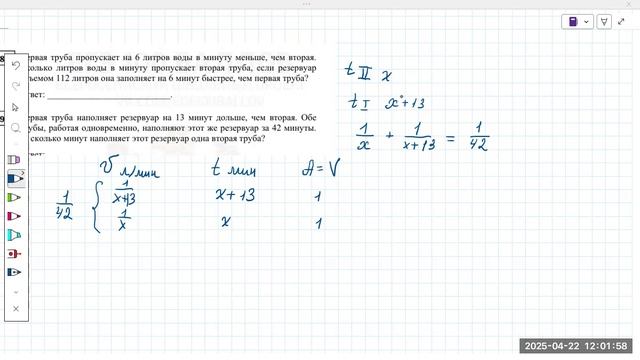 8
ервая труба пропускает на 6 литров воды в минуту меньше, чем вторая.
колько литров воды в минуту пропускает вторая труба, если резервуар
ъемом 112 литров она заполняет на 6 минут быстрее, чем первая труба?
вет: ___________________________.
9
ервая труба наполняет резервуар на 13 минут дольше, чем вторая. Обе
убы, работая одновременно, наполняют этот же резервуар за 42 минуты.
сколько минут наполняет этот резервуар одна вторая труба?
t II x
t I x+13
1/x + 1/(x+13) = 1/42
v л/мин t мин A=V
1/42 { 1/(x+13) x+13 1
1/x x 1
2025-04-22 12:01:58